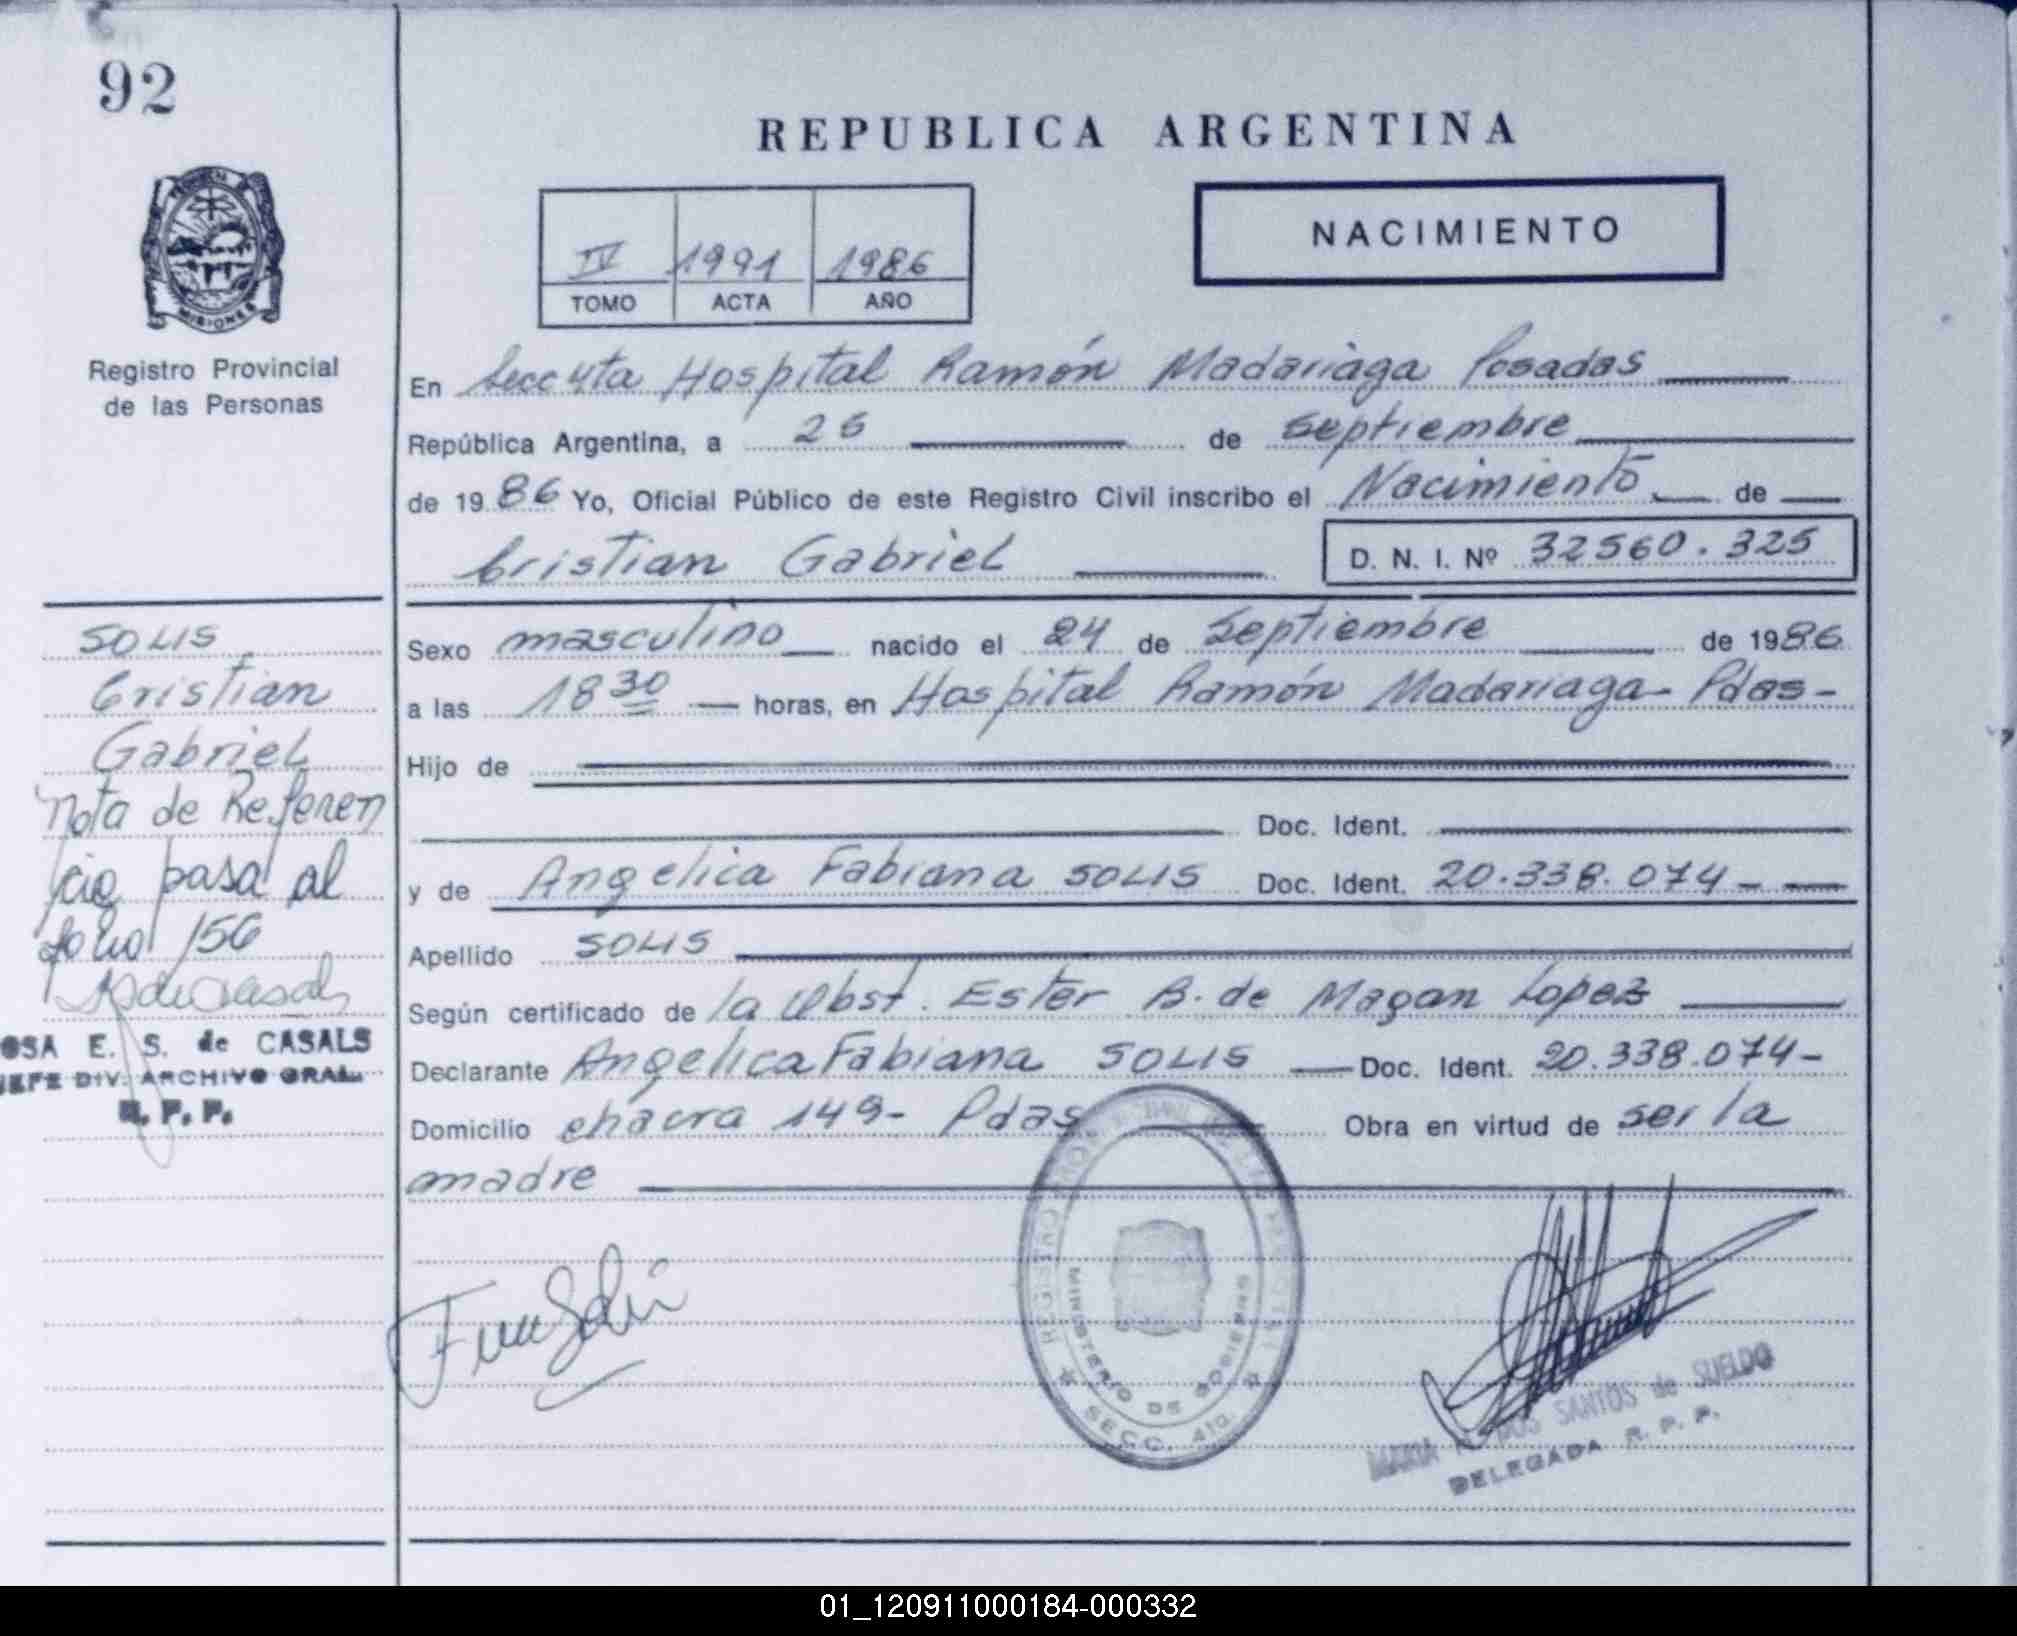 92
MISIONES
Registro Provincial
de las Personas
SOLIS
Cristian
Gabriel
Nota de Referen
cia pasa al
folio 156
OSA E. S. de CASALS
JEFE DIV. ARCHIVO GRAL.
R. P. P.
REPUBLICA ARGENTINA
IV 1991 1986
TOMO ACTA AÑO
NACIMIENTO
En Secc 4ta Hospital Ramón Madariaga Posadas
República Argentina, a 26 de Septiembre
de 1986 Yo, Oficial Público de este Registro Civil inscribo el Nacimiento de
Cristian Gabriel D. N. I. Nº 32560.325
Sexo masculino nacido el 24 de Septiembre de 1986
a las 18 30 horas, en Hospital Ramón Madariaga - Pdas -
Hijo de
Doc. Ident.
y de Angelica Fabiana SOLIS Doc. Ident. 20.338.074 -
Apellido SOLIS
Según certificado de la Obst. Ester B. de Magan Lopez
Declarante Angelica Fabiana SOLIS Doc. Ident. 20.338.074 -
Domicilio chacra 149 - Pdas Obra en virtud de ser la
madre
REGISTRO
MINISTERIO DE GOBIERNO
SECC. 4ta.
MARIA DOS SANTOS de SUELDO
DELEGADA R. P. P.
01_120911000184-000332